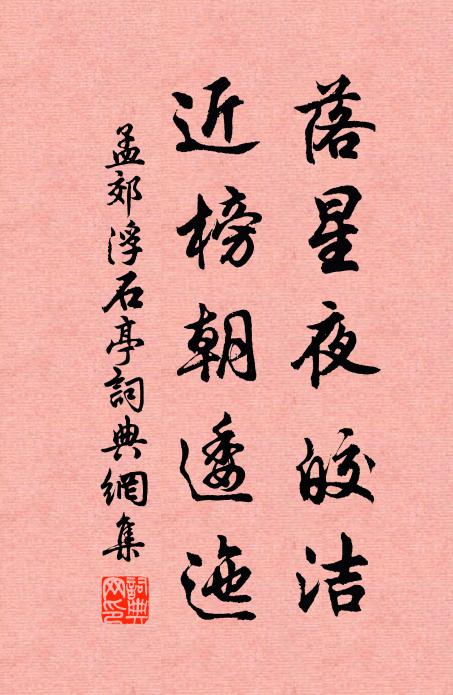 落星夜皎洁
近榜朝逶迤
孟郊浮石亭詞典網集
詞典網印